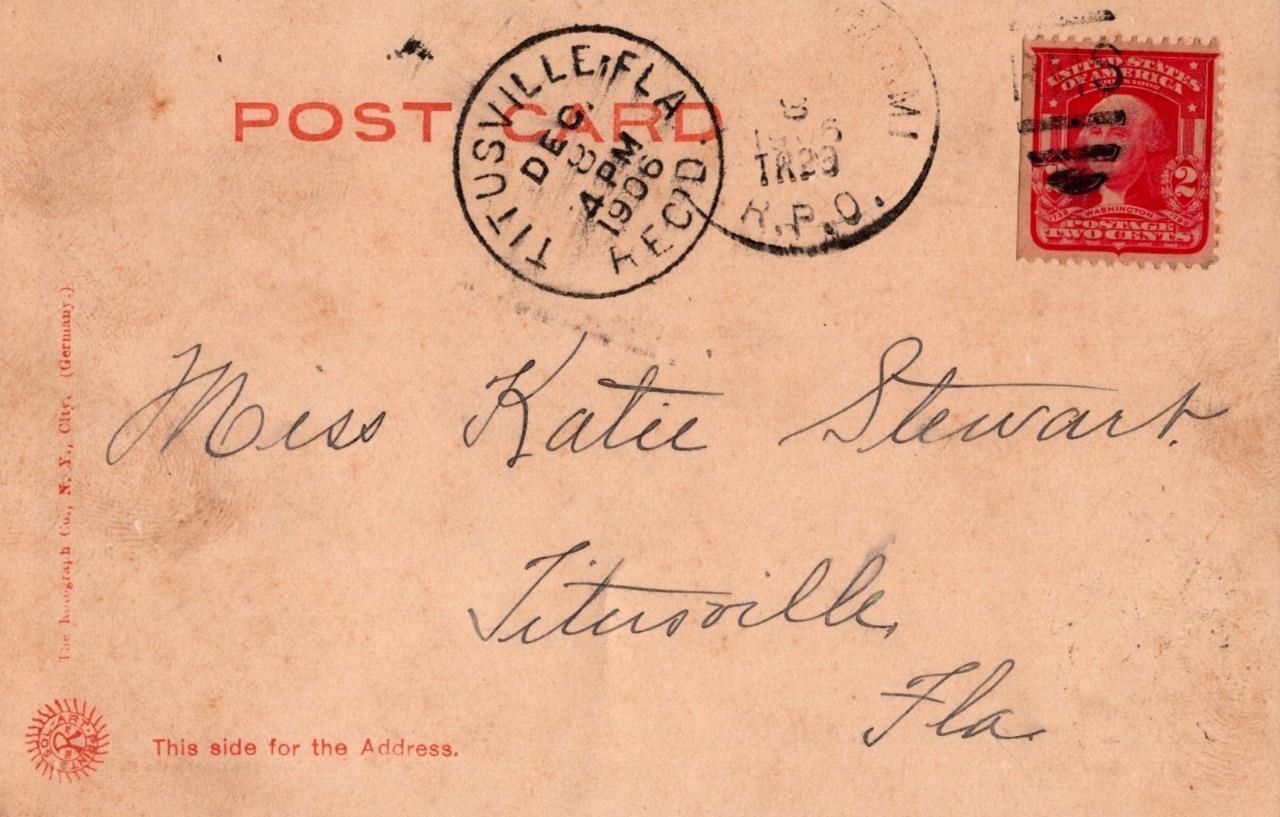 POST CARD
TITUSVILLE, FLA.
DEC
8
4 PM
1906
REC'D.
MIAMI
8
1906
TR29
R.P.O.
UNITED STATES
OF AMERICA
2
WASHINGTON
POSTAGE
TWO CENTS
Miss Katie Stewart.
Titusville,
Fla.
The Rotograph Co., N. Y., City. (Germany.)
SOL-ART PRINTS
This side for the Address.